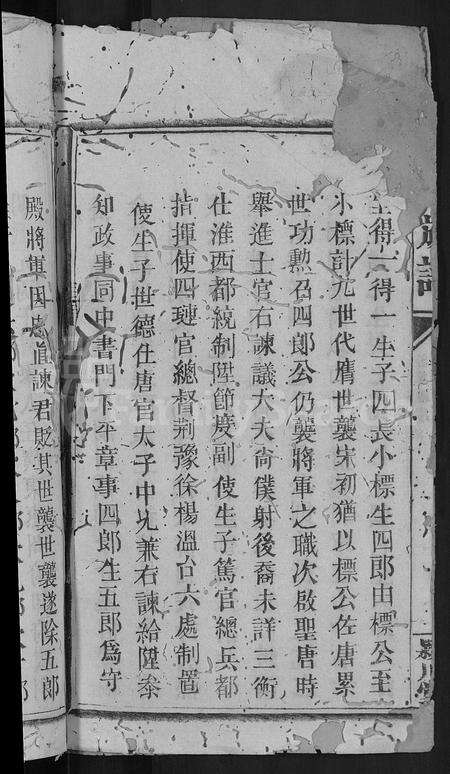 生得一得一生子四長小標生四郎由標公至
小標計九世代膺世襲宋初猶以標公佐唐累
世功勲召四郎公仍襲將軍之職次啟聖唐時
舉進士官右諫議大夫尚僕射後裔未詳三衡
仕淮西都統制陞節度副使生子篤官總兵都
指揮使四璉官總督荆豫徐楊溫台六處制置
使生子世德仕唐官太子中允兼右諫給陞叅
知政事同中書門下平章事四郎生五郎為守
殿將軍因忠直諫君貶其世襲世襲遂除五郎